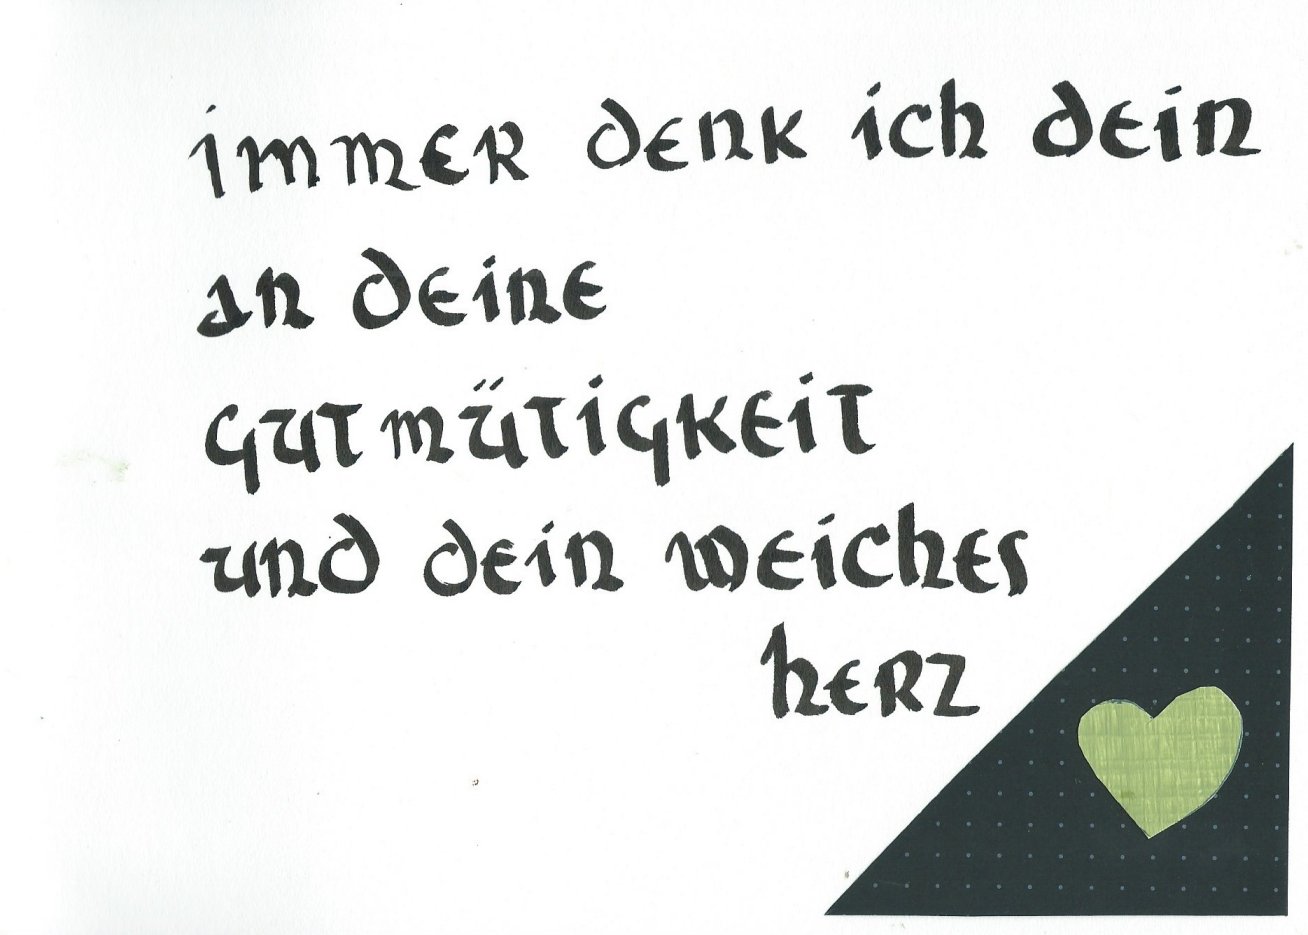 immer denk ich dein
an deine
gutmütigkeit
und dein weiches
herz